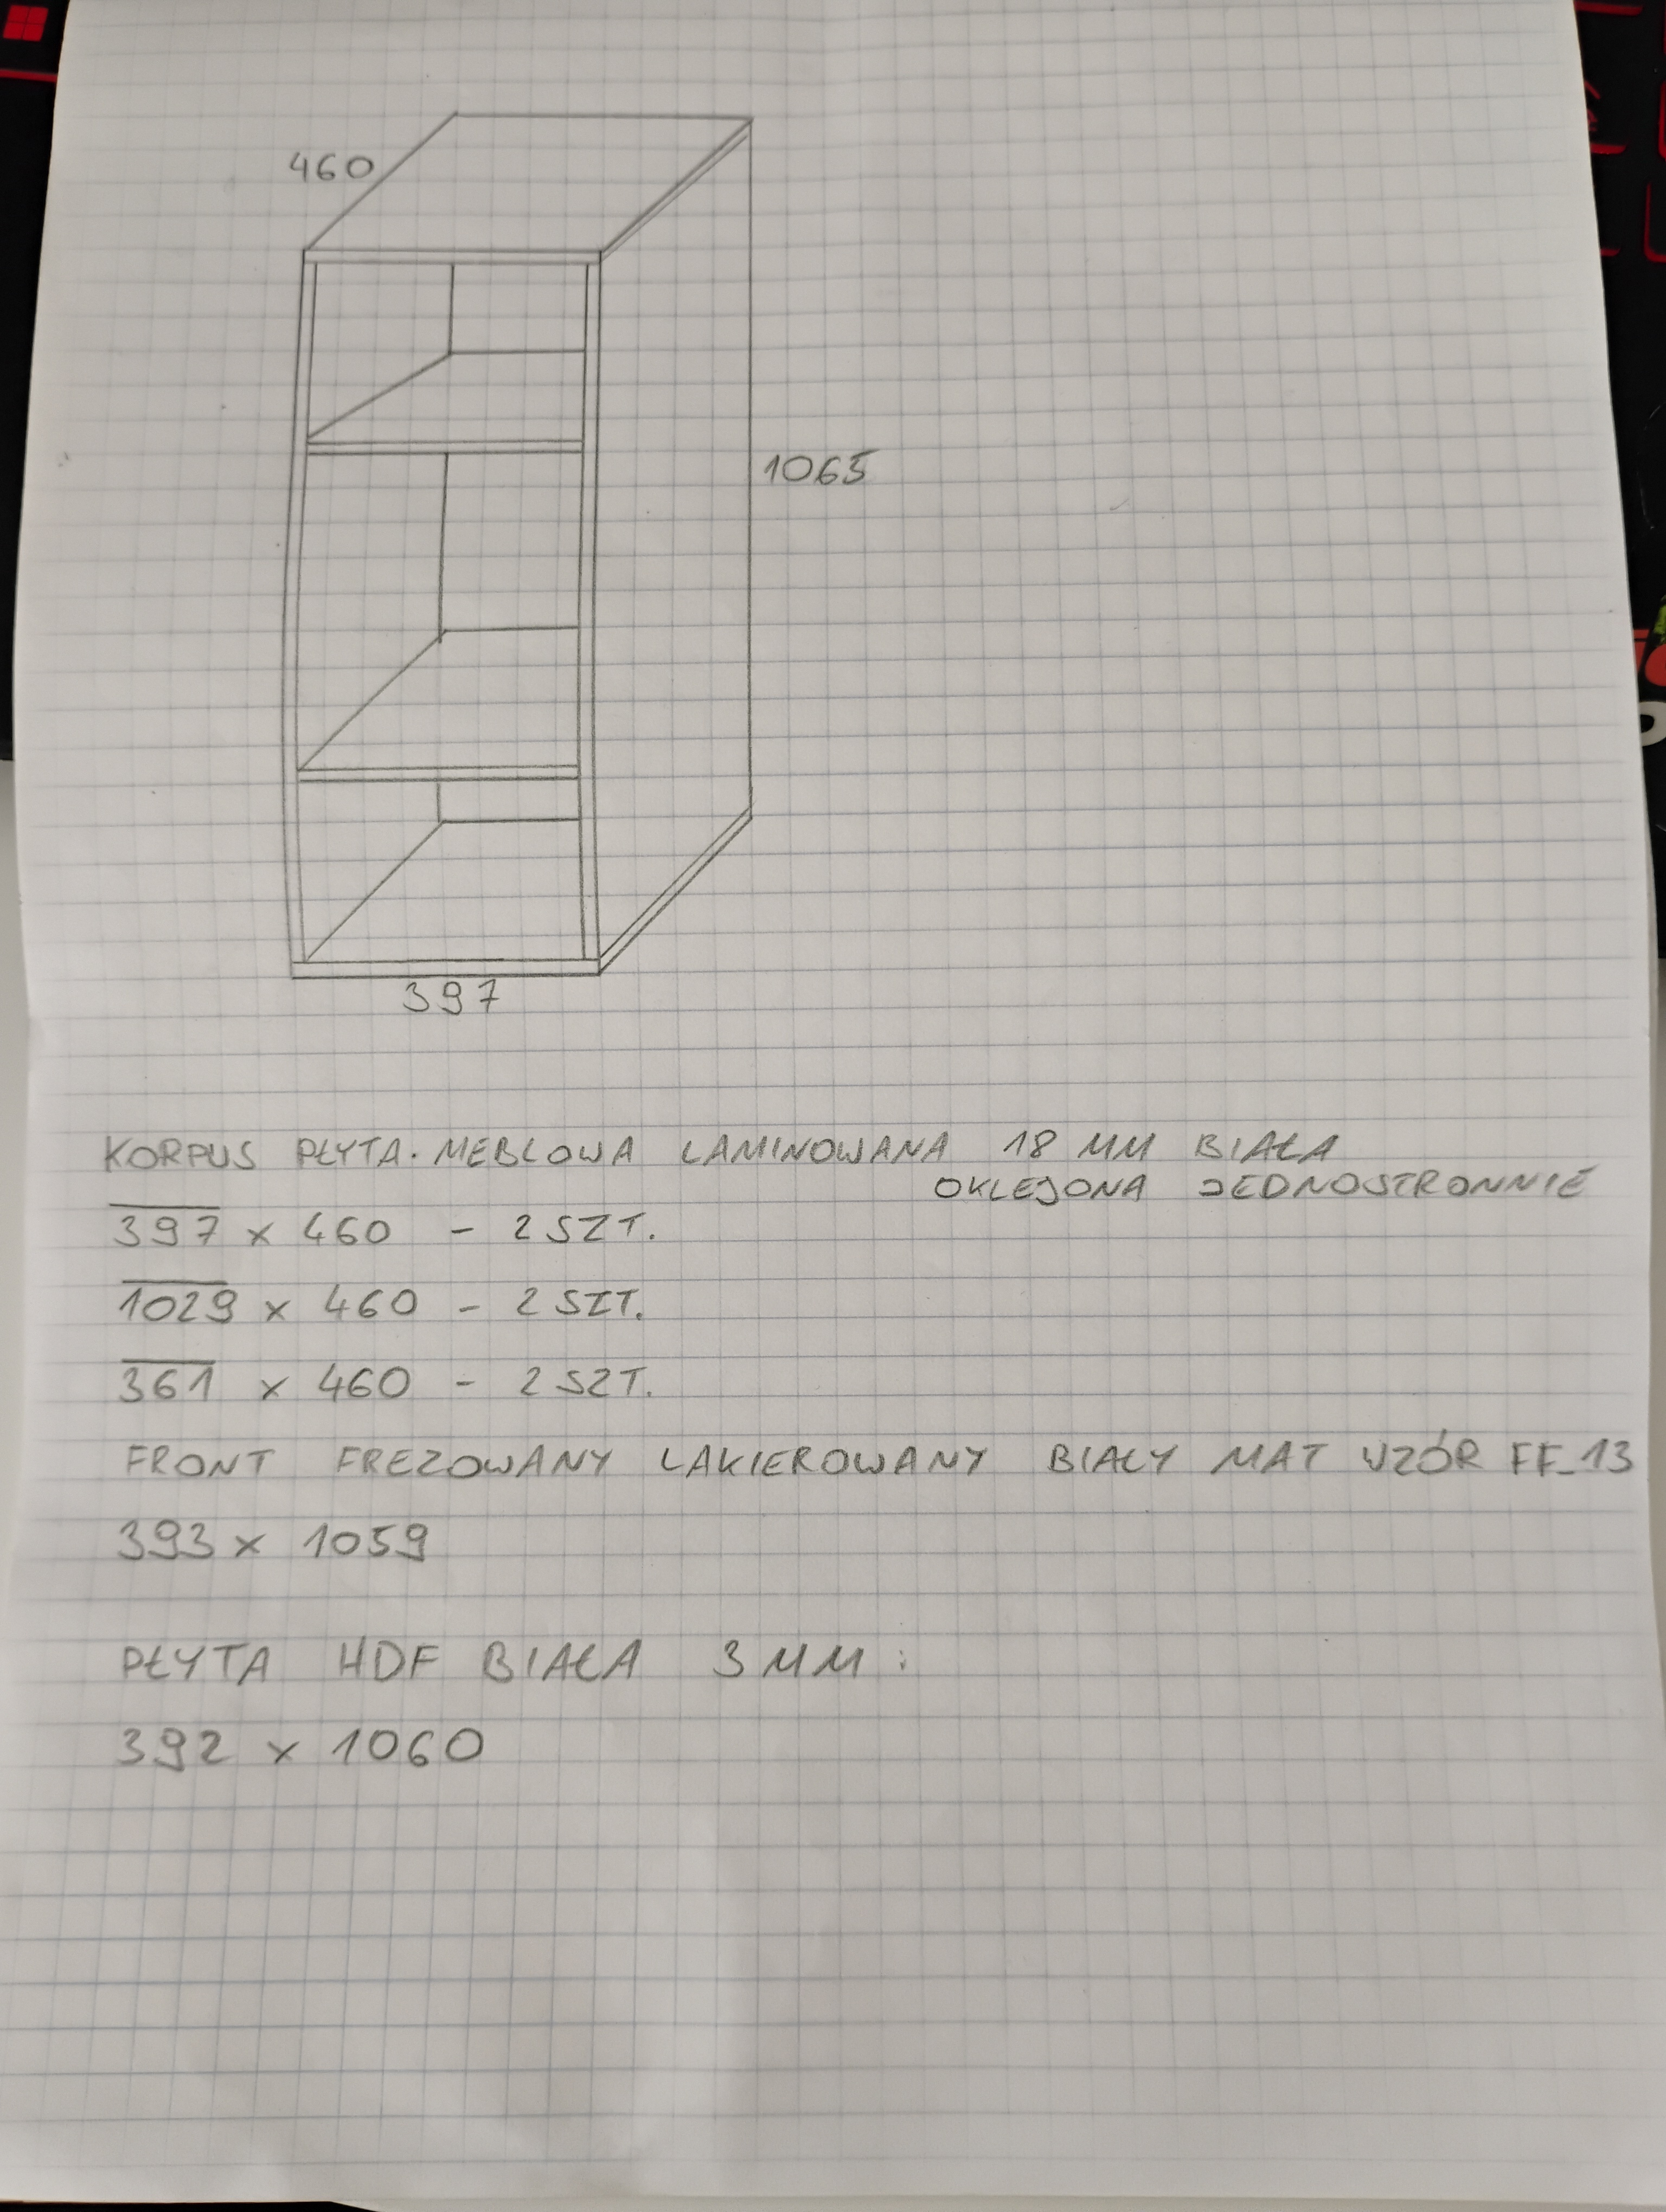 460
1065
397
KORPUS PŁYTA. MEBLOWA LAMINOWANA 18 MM BIAŁA
OKLEJONA JEDNOSTRONNIE
397 x 460 - 2 SZT.
1029 x 460 - 2 SZT.
361 x 460 - 2 SZT.
FRONT FREZOWANY LAKIEROWANY BIAŁY MAT WZÓR FF_13
393 x 1059
PŁYTA HDF BIAŁA 3 MM:
392 x 1060